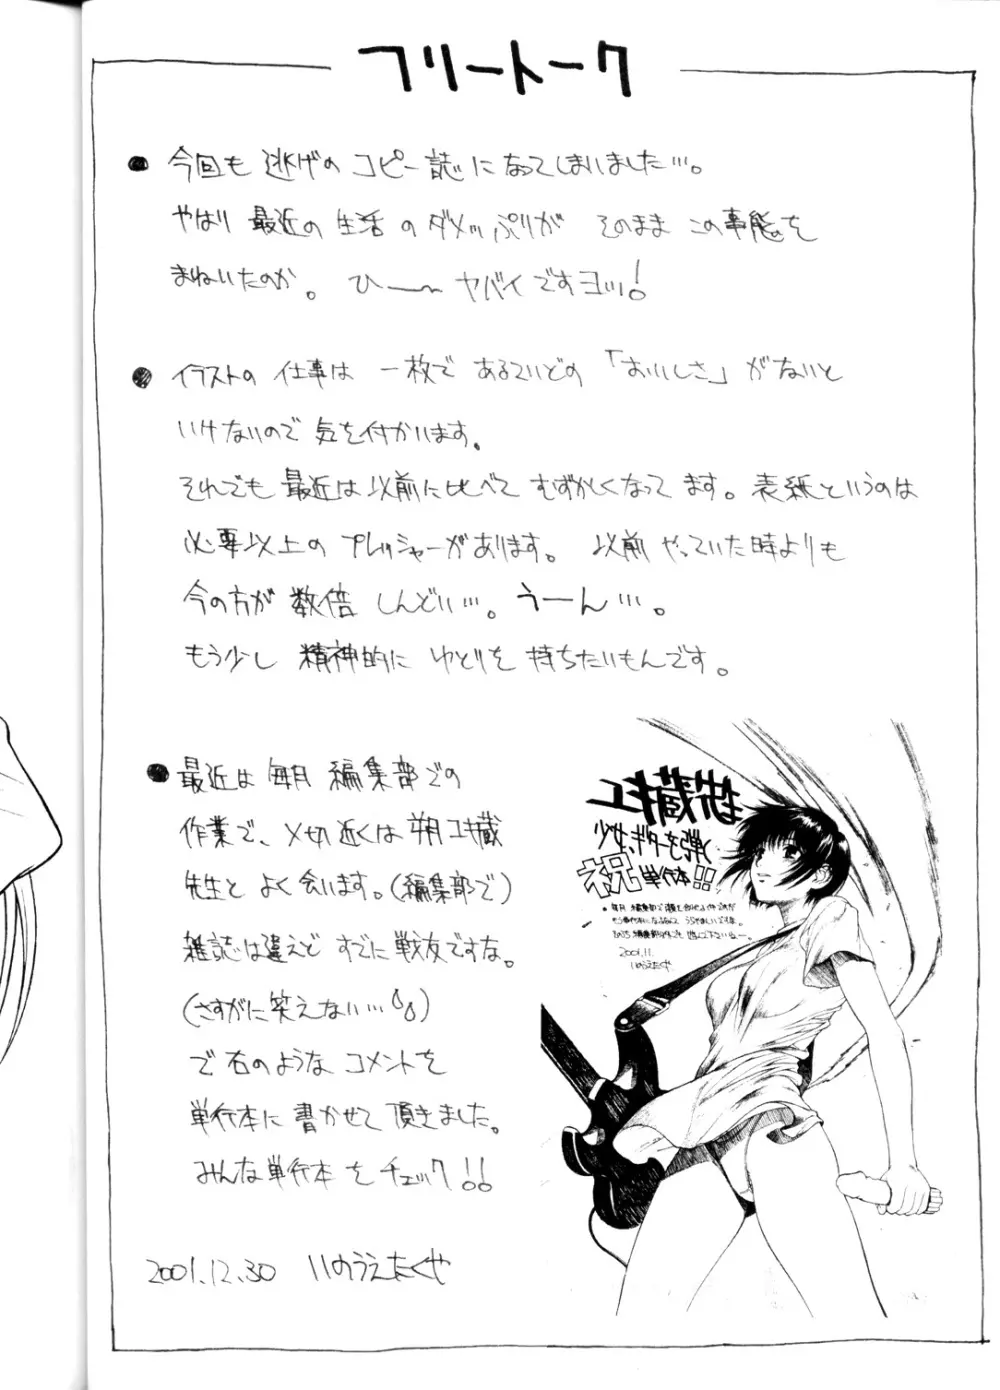 フリートーク
● 今回も 逃げの コピー誌になってしまいました…。
やはり 最近の 生活 の ダメっぷりが そのまま この事態を
まねいたのか。 ひー〜 ヤバイ ですヨッ!
● イラストの 仕事は 一枚で あるていどの 「おいしさ」が ないと
いけないので 気を付かいます。
それでも 最近は 以前に比べて むずかしくなって ます。表紙というのは
必要以上の プレッシャーがあります。 以前 やっていた 時よりも
今の方が 数倍 しんどい…。うーん…。
もう少し 精神的に ゆとりを 持ちたいもんです。
● 最近は 毎月 編集部での
作業で、〆切 近くは 朔ユキ蔵
先生と よく会います。(編集部で)
雑誌は違えど すでに 戦友ですな。
(さすがに笑えない…)
で 右のような コメントを
単行本に 書かせて 頂きました。
みんな単行本 を チェック!!
2001.12.30 いのうえたくや
ユキ蔵先生
少女、ギターを弾く
祝 単行本!!
2001.11.
いのうえたくや